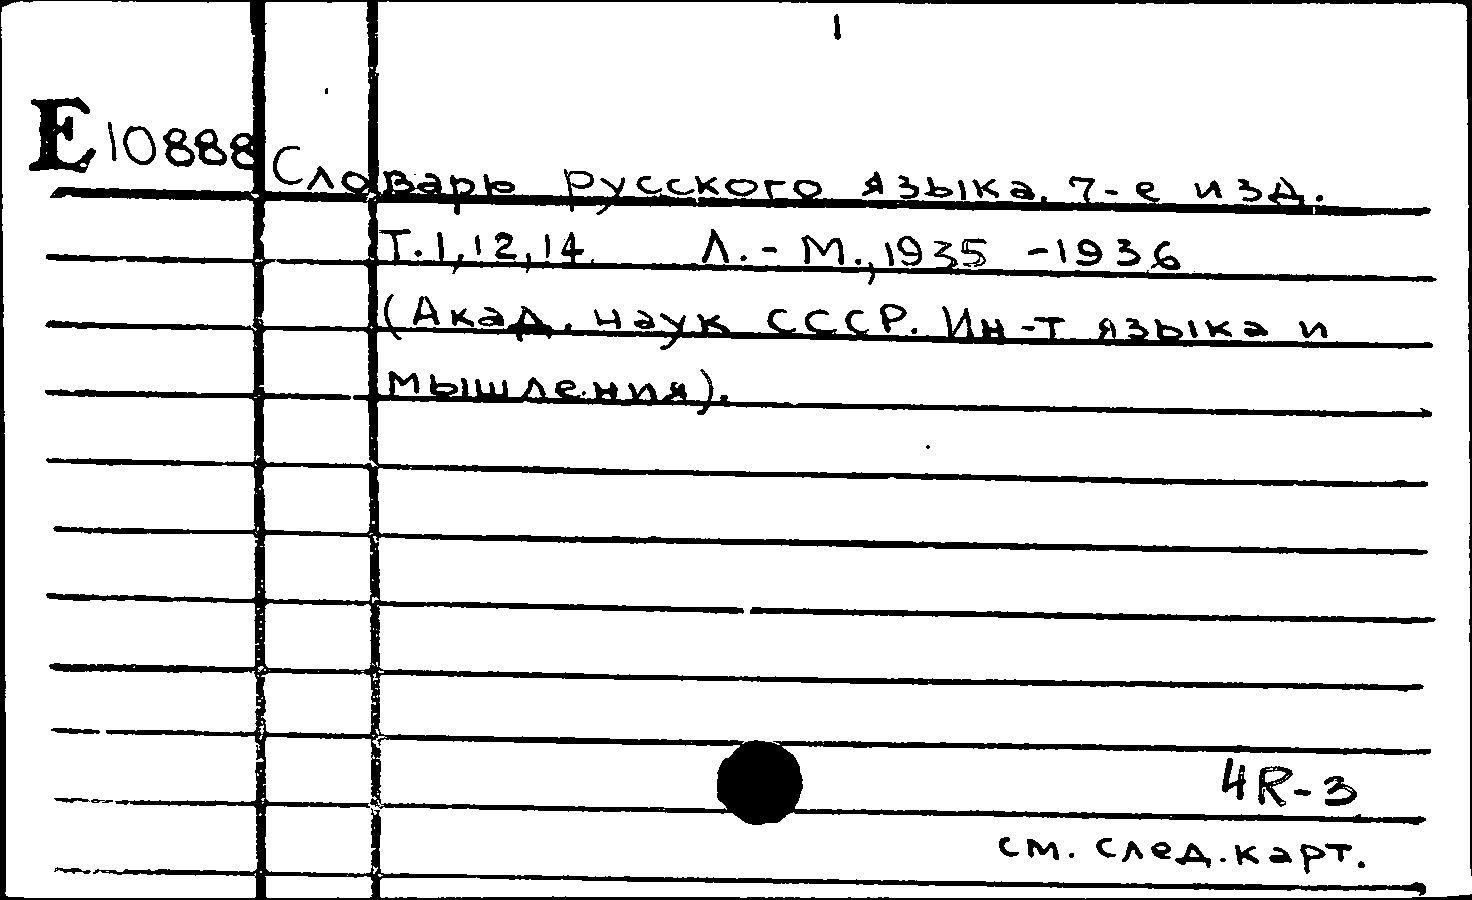 1
E10888
Словарь русского языка. 7-е изд.
Т.1,12,14. Л.-М.,1935-1936
(Акад. наук СССР. Ин-т языка и
мышления).
4R-3
см. след.карт.